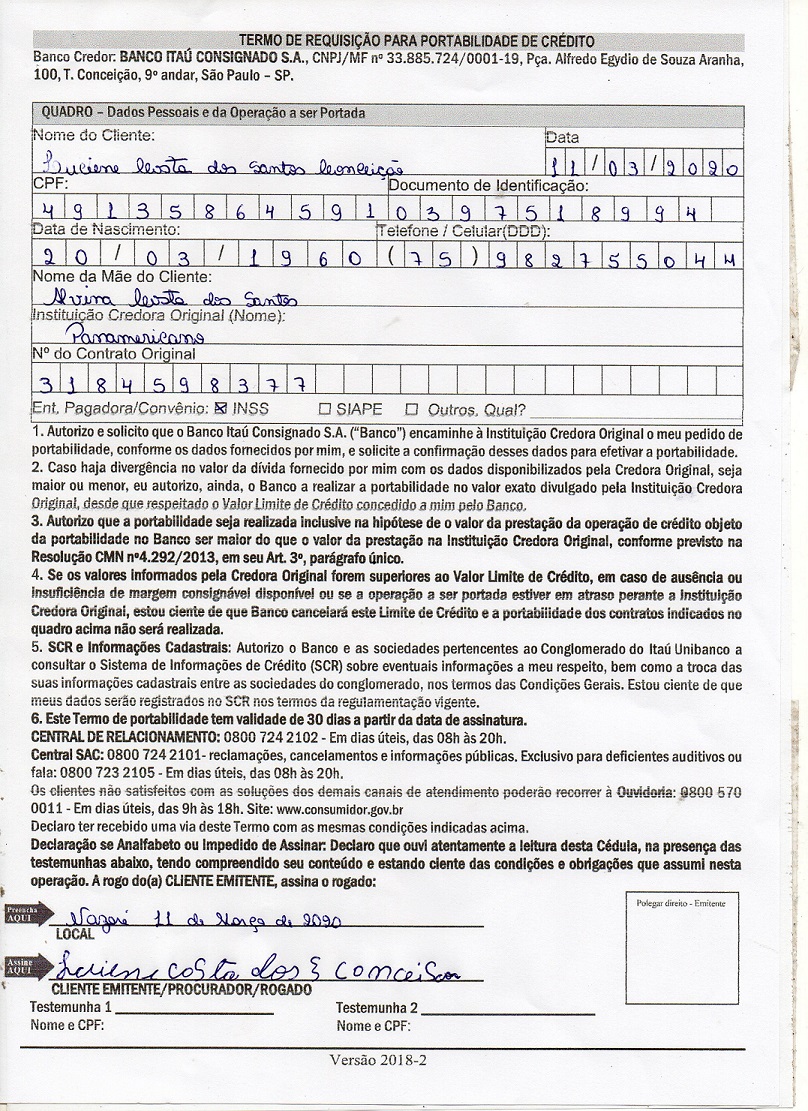 TERMO DE REQUISIÇÃO PARA PORTABILIDADE DE CRÉDITO
Banco Credor: BANCO ITAÚ CONSIGNADO S.A., CNPJ/MF nº 33.885.724/0001-19, Pça. Alfredo Egydio de Souza Aranha,
100, T. Conceição, 9º andar, São Paulo – SP.
QUADRO – Dados Pessoais e da Operação a ser Portada
Nome do Cliente: Data
Luciene Costa dos Santos Conceição 11/03/2020
CPF: Documento de Identificação:
49135864591 0397518994
Data de Nascimento: Telefone / Celular(DDD):
20/03/1960 (75)982755044
Nome da Mãe do Cliente:
Alvina Costa dos Santos
Instituição Credora Original (Nome):
Panamericano
Nº do Contrato Original
3184598377
Ent. Pagadora/Convênio: ☒ INSS ☐ SIAPE ☐ Outros, Qual?
1. Autorizo e solicito que o Banco Itaú Consignado S.A. (“Banco”) encaminhe à Instituição Credora Original o meu pedido de
portabilidade, conforme os dados fornecidos por mim, e solicite a confirmação desses dados para efetivar a portabilidade.
2. Caso haja divergência no valor da dívida fornecido por mim com os dados disponibilizados pela Credora Original, seja
maior ou menor, eu autorizo, ainda, o Banco a realizar a portabilidade no valor exato divulgado pela Instituição Credora
Original, desde que respeitado o Valor Limite de Crédito concedido a mim pelo Banco.
3. Autorizo que a portabilidade seja realizada inclusive na hipótese de o valor da prestação da operação de crédito objeto
da portabilidade no Banco ser maior do que o valor da prestação na Instituição Credora Original, conforme previsto na
Resolução CMN nº4.292/2013, em seu Art. 3º, parágrafo único.
4. Se os valores informados pela Credora Original forem superiores ao Valor Limite de Crédito, em caso de ausência ou
insuficiência de margem consignável disponível ou se a operação a ser portada estiver em atraso perante a Instituição
Credora Original, estou ciente de que Banco cancelará este Limite de Crédito e a portabilidade dos contratos indicados no
quadro acima não será realizada.
5. SCR e Informações Cadastrais: Autorizo o Banco e as sociedades pertencentes ao Conglomerado do Itaú Unibanco a
consultar o Sistema de Informações de Crédito (SCR) sobre eventuais informações a meu respeito, bem como a troca das
suas informações cadastrais entre as sociedades do conglomerado, nos termos das Condições Gerais. Estou ciente de que
meus dados serão registrados no SCR nos termos da regulamentação vigente.
6. Este Termo de portabilidade tem validade de 30 dias a partir da data de assinatura.
CENTRAL DE RELACIONAMENTO: 0800 724 2102 - Em dias úteis, das 08h às 20h.
Central SAC: 0800 724 2101- reclamações, cancelamentos e informações públicas. Exclusivo para deficientes auditivos ou
fala: 0800 723 2105 - Em dias úteis, das 08h às 20h.
Os clientes não satisfeitos com as soluções dos demais canais de atendimento poderão recorrer à Ouvidoria: 0800 570
0011 - Em dias úteis, das 9h às 18h. Site: www.consumidor.gov.br
Declaro ter recebido uma via deste Termo com as mesmas condições indicadas acima.
Declaração se Analfabeto ou Impedido de Assinar: Declaro que ouvi atentamente a leitura desta Cédula, na presença das
testemunhas abaixo, tendo compreendido seu conteúdo e estando ciente das condições e obrigações que assumi nesta
operação. A rogo do(a) CLIENTE EMITENTE, assina o rogado:
Polegar direito - Emitente
Preencha AQUI Nazaré 11 de Março de 2020
LOCAL
Assine AQUI Luciene Costa dos S Conceiscao
CLIENTE EMITENTE/PROCURADOR/ROGADO
Testemunha 1 Testemunha 2
Nome e CPF: Nome e CPF:
Versão 2018-2